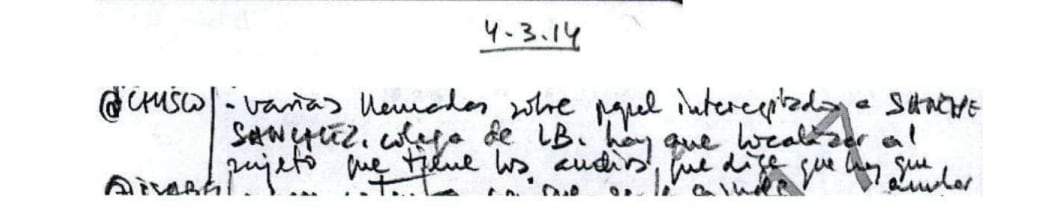 4.3.14
@CHISCO - varias llamadas sobre papel interceptado a SANCHE
SANCHEZ. colega de LB. hay que localizar al
sujeto que tiene los audios, que dice que hay que
ayudar